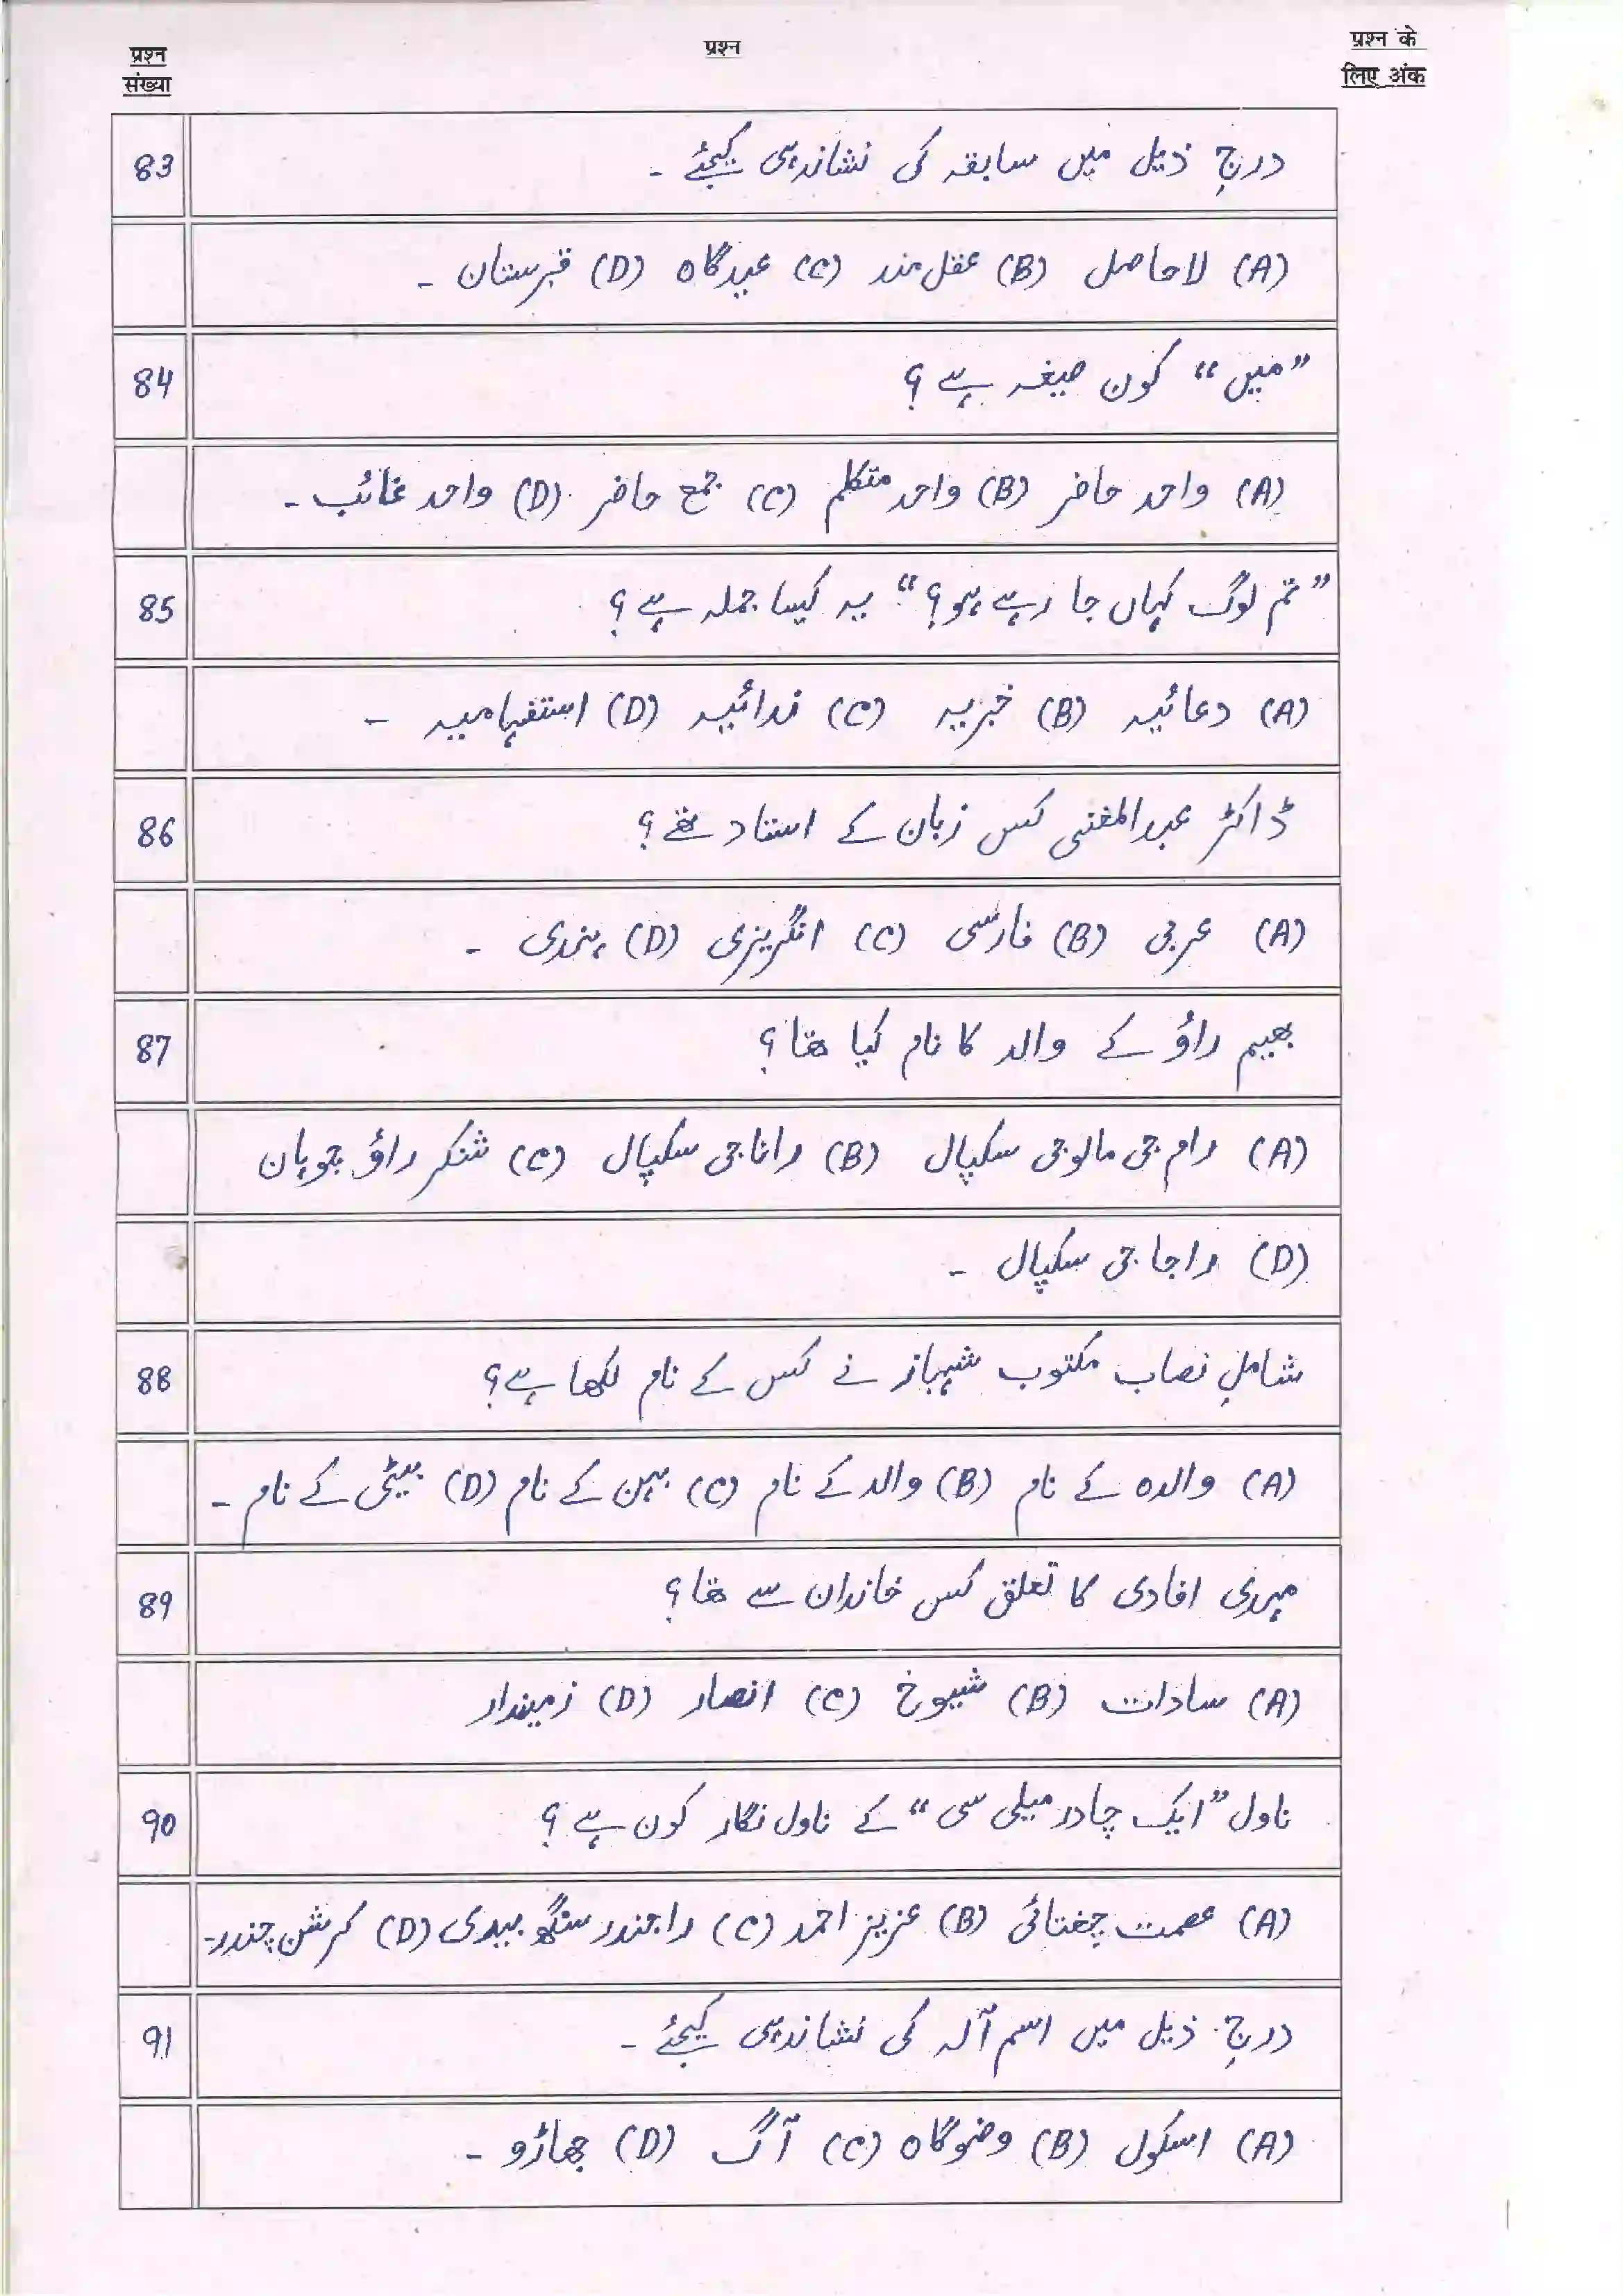 प्रश्न संख्या
प्रश्न
प्रश्न के लिए अंक
83
درجِ ذیل میں سابقہ کی نشاندہی کیجئے ۔
(A) لا حاصل (B) عقل مند (C) عیدگاہ (D) قبرستان ۔
84
”میں“ کون صیغہ ہے ؟
(A) واحد حاضر (B) واحد متکلم (C) جمع حاضر (D) واحد غائب ۔
85
”تم لوگ کہاں جا رہے ہو؟“ یہ کیسا جملہ ہے ؟
(A) دعائیہ (B) خبریہ (C) ندائیہ (D) استفہامیہ ۔
86
ڈاکٹر عبدالمغنی کس زبان کے استاد تھے ؟
(A) عربی (B) فارسی (C) انگریزی (D) ہندی ۔
87
بھیم راؤ کے والد کا نام کیا تھا ؟
(A) رام جی مالو جی سکپال (B) رانا جی سکپال (C) شنکر راؤ چوہان
(D) راجا جی سکپال ۔
88
شاملِ نصاب مکتوب شہباز نے کس کے نام لکھا ہے ؟
(A) والدہ کے نام (B) والد کے نام (C) بہن کے نام (D) بیٹی کے نام ۔
89
مہدی افادی کا تعلق کس خاندان سے تھا ؟
(A) سادات (B) شیوخ (C) انصار (D) زمیندار
90
ناول ”ایک چادر میلی سی“ کے ناول نگار کون ہے ؟
(A) عصمت چغتائی (B) عزیز احمد (C) راجندر سنگھ بیدی (D) کرشن چندر۔
91
درجِ ذیل میں اسم آلہ کی نشاندہی کیجئے ۔
(A) اسکول (B) وضوگاہ (C) آگ (D) جھاڑو ۔